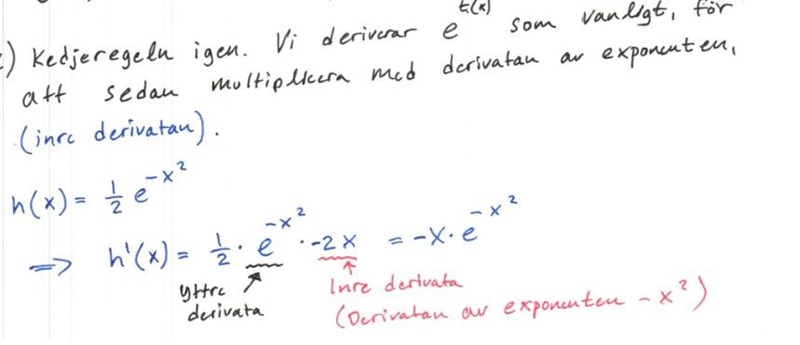 c) Kedjeregeln igen. Vi deriverar e^{t(x)} som vanligt, för
att sedan multiplicera med derivatan av exponenten,
(inre derivatan).
h(x) = 1/2 e^{-x²}
⇒ h'(x) = 1/2 · e^{-x²} · -2x = -x · e^{-x²}
Yttre
derivata
Inre derivata
(Derivatan av exponenten -x²)